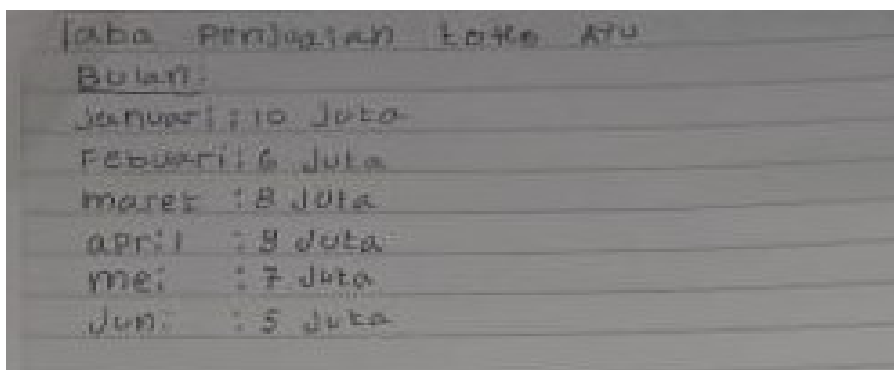 laba Penjualan toko ATU
Bulan:
Januari : 10 Juta
Febuari : 6 Juta
maret : 8 Juta
april : 9 Juta
mei : 7 Juta
Juni : 5 Juta